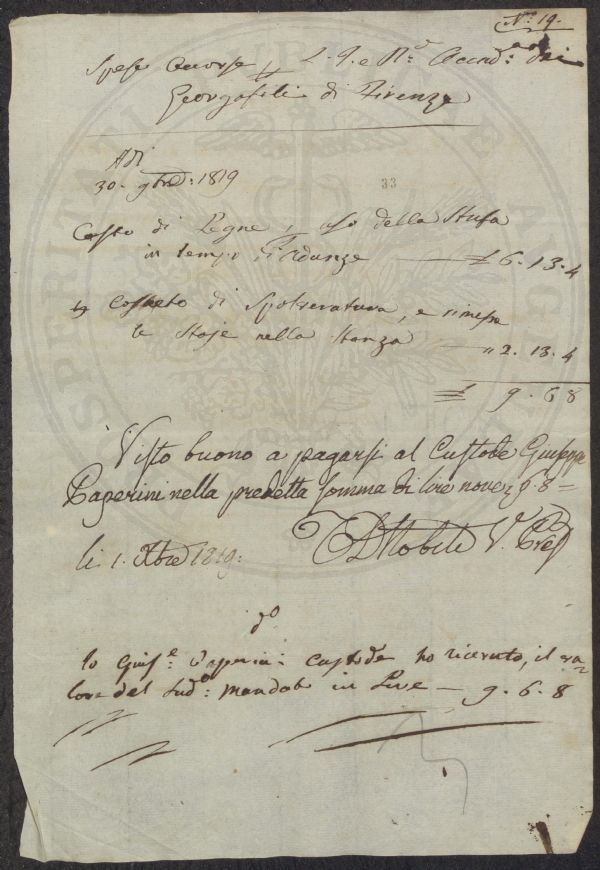 N.° 19.
Spese occorse L. I. e R.e Accad.a dei
Georgofili di Firenze
Adì
30. 9bre: 1819
33
Costo di Legne, uso della Stufa
in tempo di Adunze £ 6. 13. 4
di Spolveratura, e rimessa
le Stoje nella Stanza " 2. 13. 4
£ 9. 6 8
Visto buono a pagarsi al Custode Giuseppe
Paperini nella predetta somma di lire nove, 6. 8 =
Nobili V. Pres
li 1. Xbre 1819:
do
Io Gius.e Paperini Custode ho ricevuto, il va
lore del Sud.o mandato in Lire — 9. 6. 8